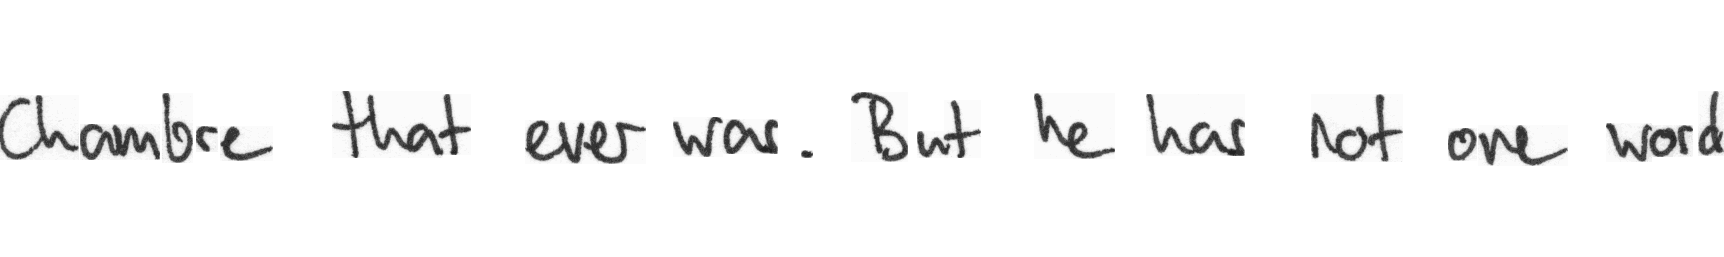 Chambre that ever was. But he has not one word